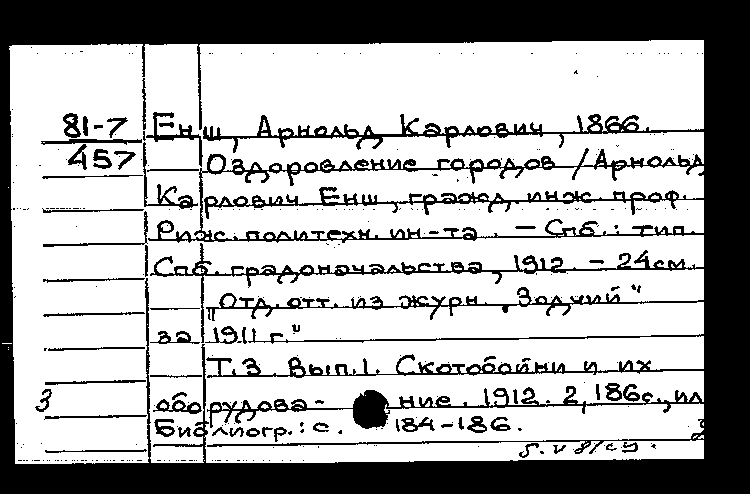 81-7 Енш, Арнольд Карлович, 1866.
457 Оздоровление городов / Арнольд
Карлович Енш, гражд. инж. проф.
Рижс. политехн. ин-та. – Спб.: тип.
Спб. градоначальства, 1912. – 24 см.
"Отд. отт. из журн. "Зодчий"
за 1911 г."
Т.3. Вып.1. Скотобойни и их
3 оборудова- ние. 1912. 2, 186 с., ил
Библиогр.: с. 184-186.